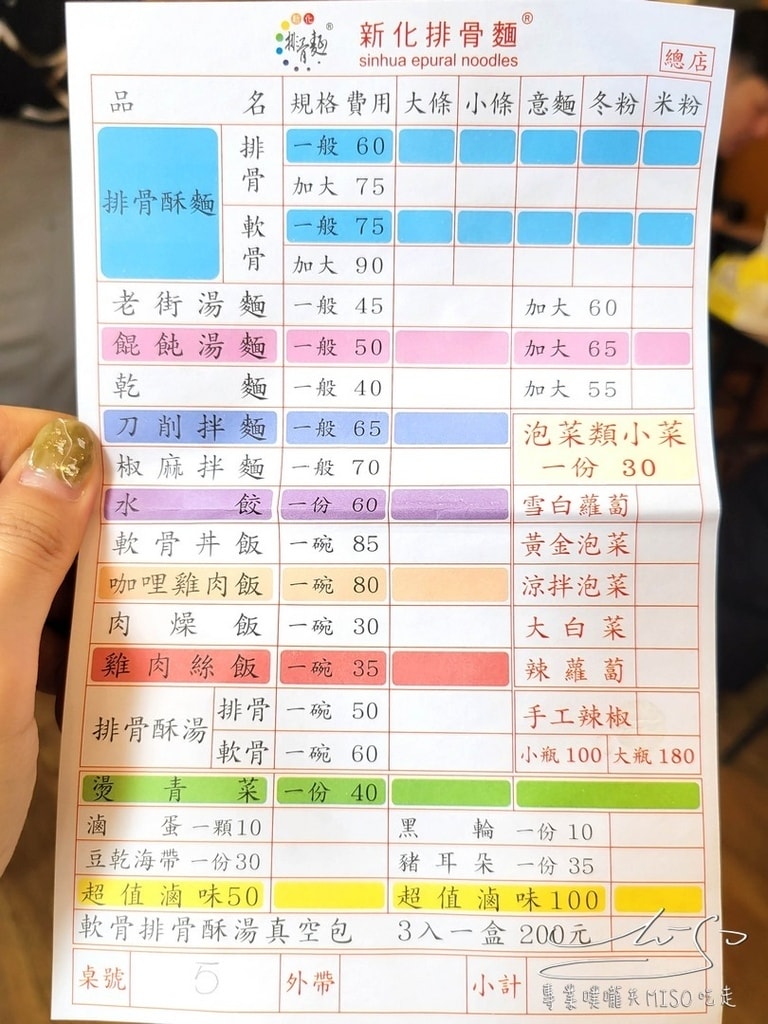 新化 排骨麵® 新化排骨麵®
sinhua epural noodles
總店
品名 規格 費用 大條 小條 意麵 冬粉 米粉
排骨酥麵 排骨 一般 60
加大 75
軟骨 一般 75
加大 90
老街湯麵 一般 45 加大 60
餛飩湯麵 一般 50 加大 65
乾麵 一般 40 加大 55
刀削拌麵 一般 65
椒麻拌麵 一般 70
水餃 一份 60
軟骨丼飯 一碗 85
咖哩雞肉飯 一碗 80
肉燥飯 一碗 30
雞肉絲飯 一碗 35
排骨酥湯 排骨 一碗 50
軟骨 一碗 60
燙青菜 一份 40
泡菜類小菜
一份 30
雪白蘿蔔
黃金泡菜
涼拌泡菜
大白菜
辣蘿蔔
手工辣椒
小瓶 100 大瓶 180
滷蛋 一顆10 黑輪 一份 10
豆乾海帶 一份30 豬耳朵 一份 35
超值滷味50 超值滷味100
軟骨排骨酥湯真空包 3入一盒 200元
桌號 5 外帶 小計
專業噗嚨共MISO吃走